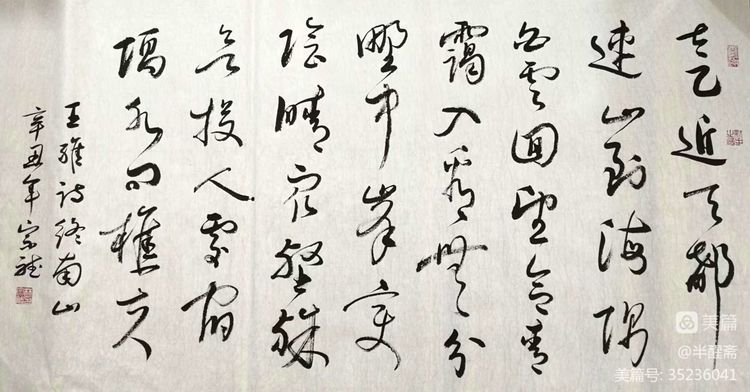 太乙近天都
連山到海隅
白雲回望合青
靄入看無分
野中峯变
陰晴众壑殊
欲投人處宿
隔水问樵夫
王維詩終南山
辛丑年宗
美篇
@半醒斋
美篇号: 35236041